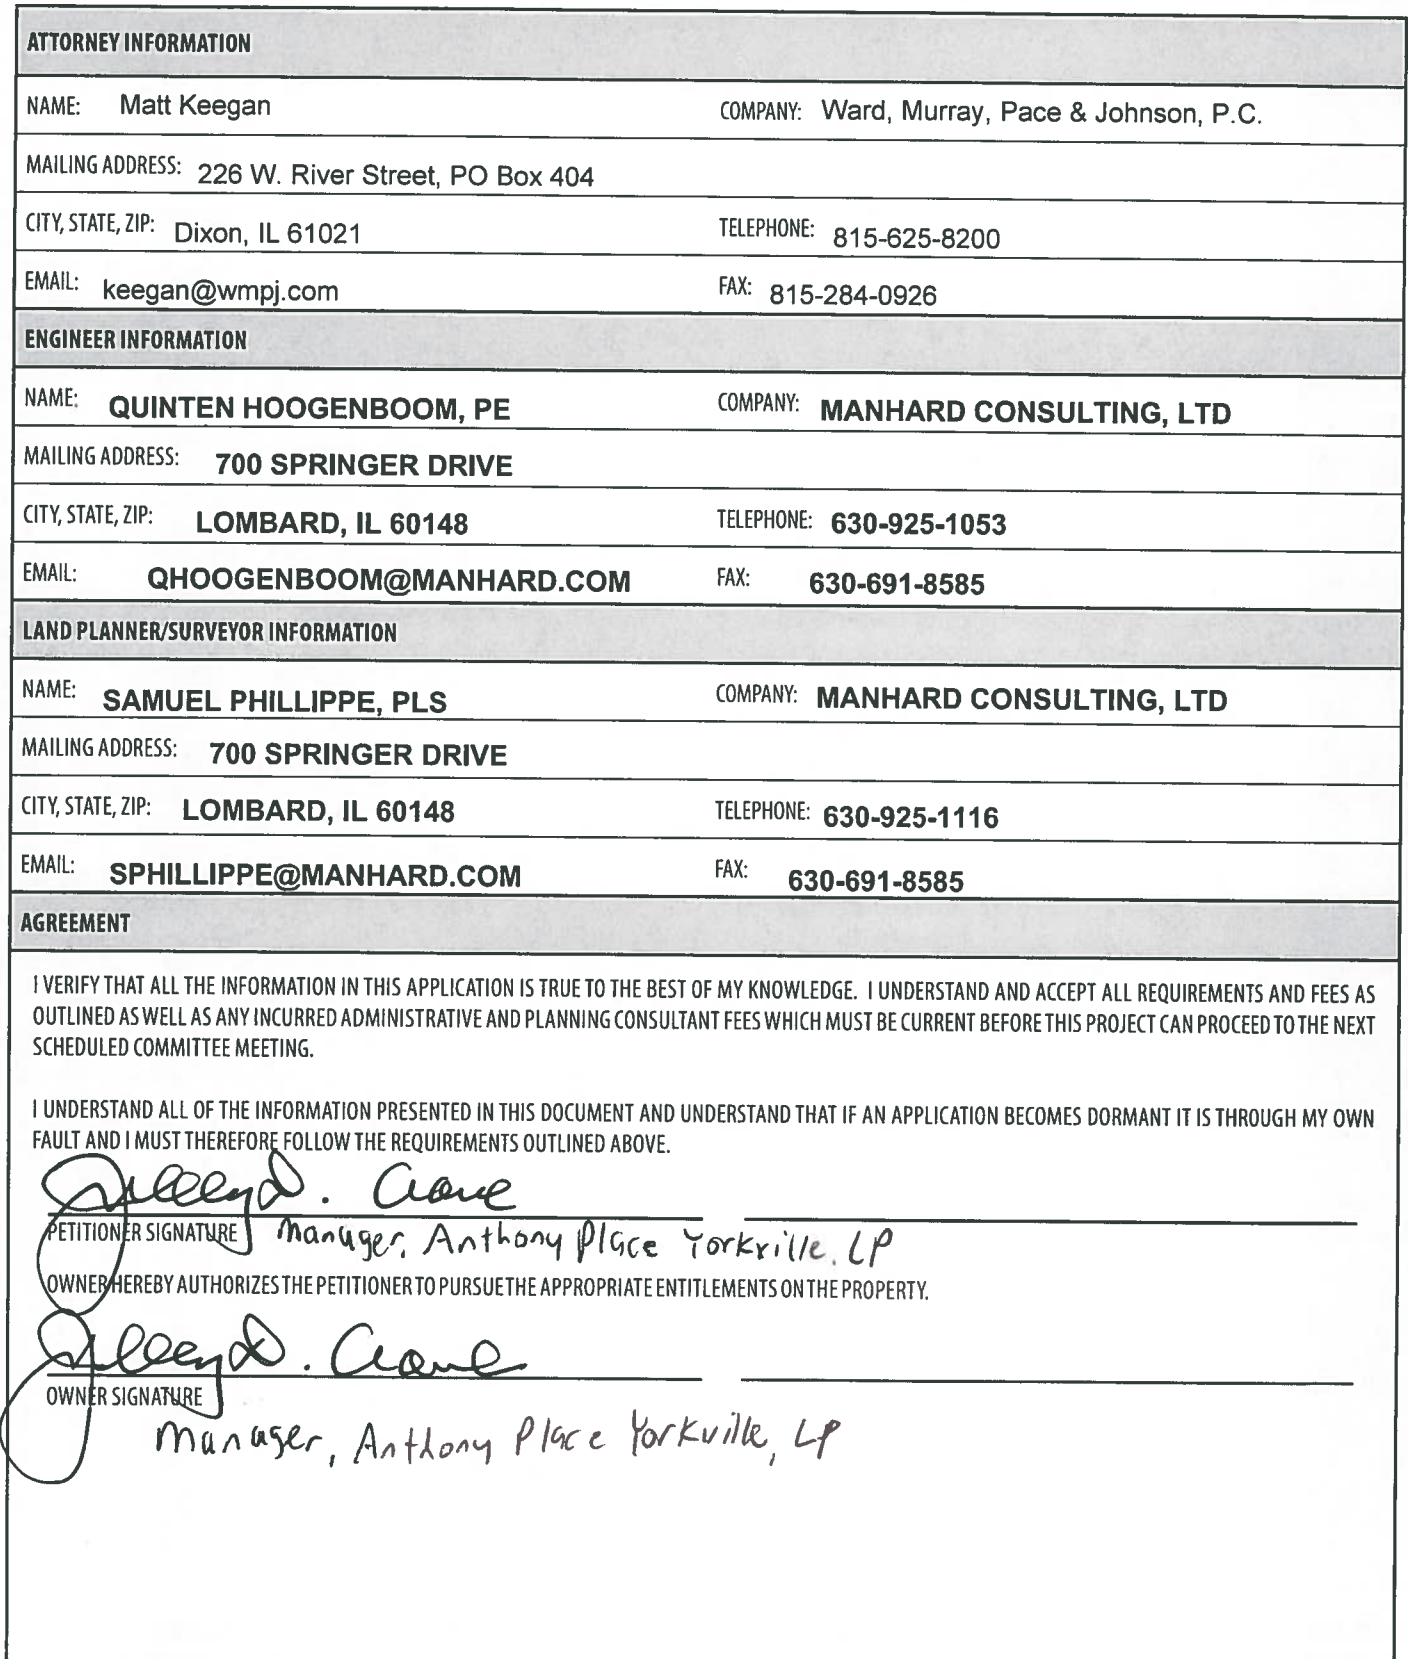 ATTORNEY INFORMATION
NAME: Matt Keegan COMPANY: Ward, Murray, Pace & Johnson, P.C.
MAILING ADDRESS: 226 W. River Street, PO Box 404
CITY, STATE, ZIP: Dixon, IL 61021 TELEPHONE: 815-625-8200
EMAIL: keegan@wmpj.com FAX: 815-284-0926
ENGINEER INFORMATION
NAME: QUINTEN HOOGENBOOM, PE COMPANY: MANHARD CONSULTING, LTD
MAILING ADDRESS: 700 SPRINGER DRIVE
CITY, STATE, ZIP: LOMBARD, IL 60148 TELEPHONE: 630-925-1053
EMAIL: QHOOGENBOOM@MANHARD.COM FAX: 630-691-8585
LAND PLANNER/SURVEYOR INFORMATION
NAME: SAMUEL PHILLIPPE, PLS COMPANY: MANHARD CONSULTING, LTD
MAILING ADDRESS: 700 SPRINGER DRIVE
CITY, STATE, ZIP: LOMBARD, IL 60148 TELEPHONE: 630-925-1116
EMAIL: SPHILLIPPE@MANHARD.COM FAX: 630-691-8585
AGREEMENT
I VERIFY THAT ALL THE INFORMATION IN THIS APPLICATION IS TRUE TO THE BEST OF MY KNOWLEDGE. I UNDERSTAND AND ACCEPT ALL REQUIREMENTS AND FEES AS
OUTLINED AS WELL AS ANY INCURRED ADMINISTRATIVE AND PLANNING CONSULTANT FEES WHICH MUST BE CURRENT BEFORE THIS PROJECT CAN PROCEED TO THE NEXT
SCHEDULED COMMITTEE MEETING.
I UNDERSTAND ALL OF THE INFORMATION PRESENTED IN THIS DOCUMENT AND UNDERSTAND THAT IF AN APPLICATION BECOMES DORMANT IT IS THROUGH MY OWN
FAULT AND I MUST THEREFORE FOLLOW THE REQUIREMENTS OUTLINED ABOVE.
D. Crane
PETITIONER SIGNATURE Manager, Anthony Place Yorkville, LP
OWNER HEREBY AUTHORIZES THE PETITIONER TO PURSUE THE APPROPRIATE ENTITLEMENTS ON THE PROPERTY.
D. Crane
OWNER SIGNATURE
Manager, Anthony Place Yorkville, LP